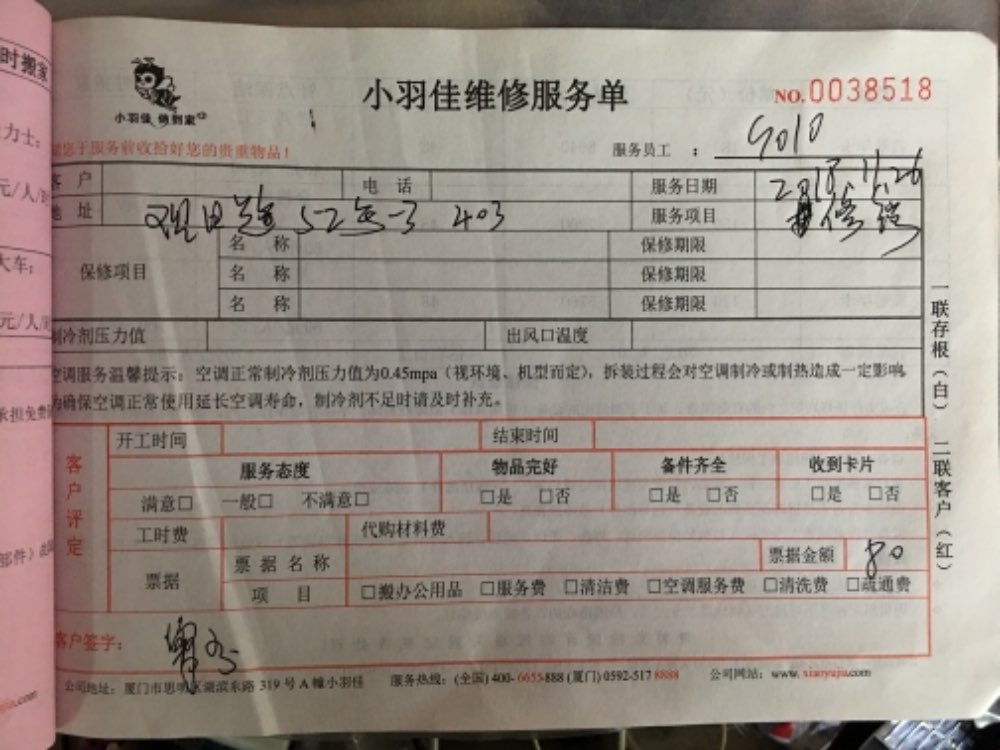 时搬家
力士:
元/人/时
大车:
元/人/时
承担免费
部件)
.com
小羽佳 修到家
小羽佳维修服务单
NO.0038518
您于服务前收拾好您的贵重物品!
服务员工 : 9010
客 户 电 话 服务日期 2018.11.26
地 址 52 -3 403 服务项目
保修项目
名 称 保修期限
名 称 保修期限
名 称 保修期限
制冷剂压力值 出风口温度
空调服务温馨提示: 空调正常制冷剂压力值为0.45mpa(视环境、机型而定), 拆装过程会对空调制冷或制热造成一定影响
为确保空调正常使用延长空调寿命, 制冷剂不足时请及时补充。
客户评定
开工时间 结束时间
服务态度 物品完好 备件齐全 收到卡片
满意□ 一般□ 不满意□ □是 □否 □是 □否 □是 □否
工时费 代购材料费
票据 票据名称 票据金额 80
项 目 □搬办公用品 □服务费 □清洁费 □空调服务费 □清洗费 □疏通费
客户签字:
公司地址: 厦门市思明区湖滨东路 319 号 A 幢小羽佳 服务热线: (全国) 400-6655-888 (厦门) 0592-517 8888 公司网站: www. xiaoyujia.com
一联存根(白) 二联客户(红)